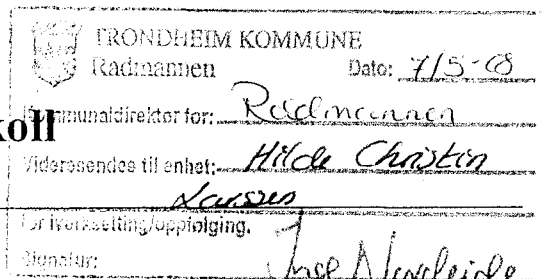 TRONDHEIM KOMMUNE
Rådmannen Dato: 7/5-08
Kommunaldirektør for: Rådmannen
koll
Videresendes til enhet: Hilde Christin
Larssen
for iverksetting/oppfølging.
Signatur: